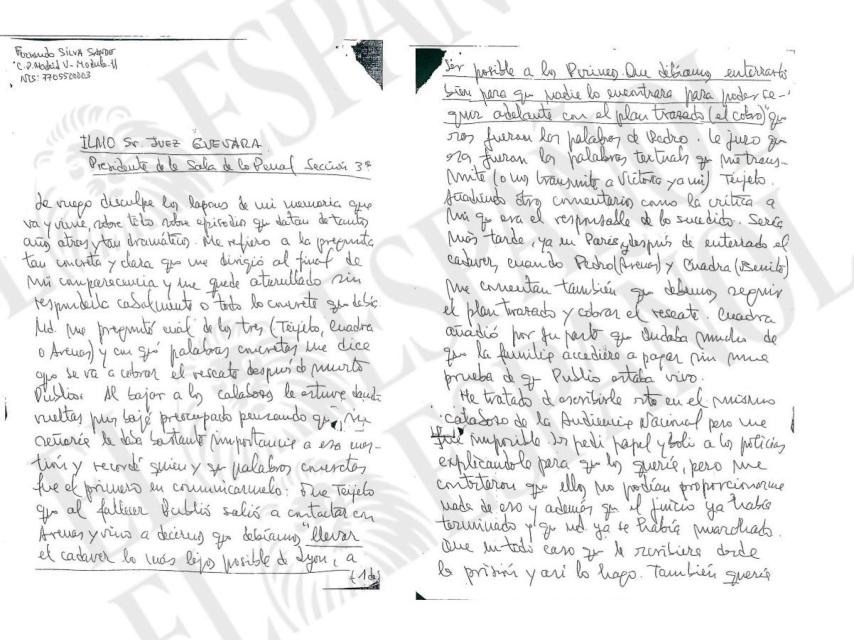 Fernando SILVA SANDE
C.P. Madrid V - Modulo 11
NIS: 7705520003
ILMO Sr. JUEZ GUEVARA
Presidente de la Sala de lo Penal Sección 3ª
Le ruego disculpe los lapsus de mi memoria que
va y viene, sobre todo sobre episodios que datan de tantos
años atras y tan dramáticos. Me refiero a la pregunta
tan concreta y clara que me dirigió al final de
mi comparecencia y me quede aturullado sin
responderla cabalmente o todo lo concreto que debía
Ud. me preguntó cuál de los tres (Teijelo, Cuadra
o Arenas) y con qué palabras concretas me dice
que se va a cobrar el rescate después de muerto
Publio. Al bajar a los calabozos le estuve dando
vueltas pues bajé preocupado pensando que su
señoría le daba bastante importancia a esa cues-
tión y recordé quien y que palabras concretas
fue el primero en comunicarmelo: Fue Teijelo
que al fallecer Publio salió a contactar con
Arenas y vino a decirnos que debíamos "llevar
el cadaver lo más lejos posible de Lyon, a
(1de)
ser posible a los Pirineos. Que debíamos enterrarlo
bien para que nadie lo encontrara para poder se-
guir adelante con el plan trazado (el cobro)" que
esas fueran las palabras de Pedro. Le juro que
esas fueran las palabras textuales que me trans-
mite (o nos transmite a Victoria y a mi) Teijelo.
Añadiendo otro comentario como la critica a
mi que era el responsable de lo sucedido. Sería
más tarde, ya en Paris y después de enterrado el
cadaver, cuando Pedro (Arenas) y Cuadra (Benito)
me comentan también que debemos seguir
el plan trazado y cobrar el rescate. Cuadra
añadió por su parte que dudaba mucho de
que la familia accediera a pagar sin una
prueba de que Publio estaba vivo.
He tratado de escribirle esto en el mismo
calabozo de la Audiencia Nacional pero me
fué imposible. Les pedí papel y boli a los policias
explicandole para que los quería, pero me
contestaron que ellos no podían proporcionarme
nada de eso y además que el juicio ya había
terminado y que ud. ya se había marchado.
Que en todo caso que le escribiera desde
la prisión y así lo hago. También quería
EL ESPAÑOL
EL ESPAÑOL